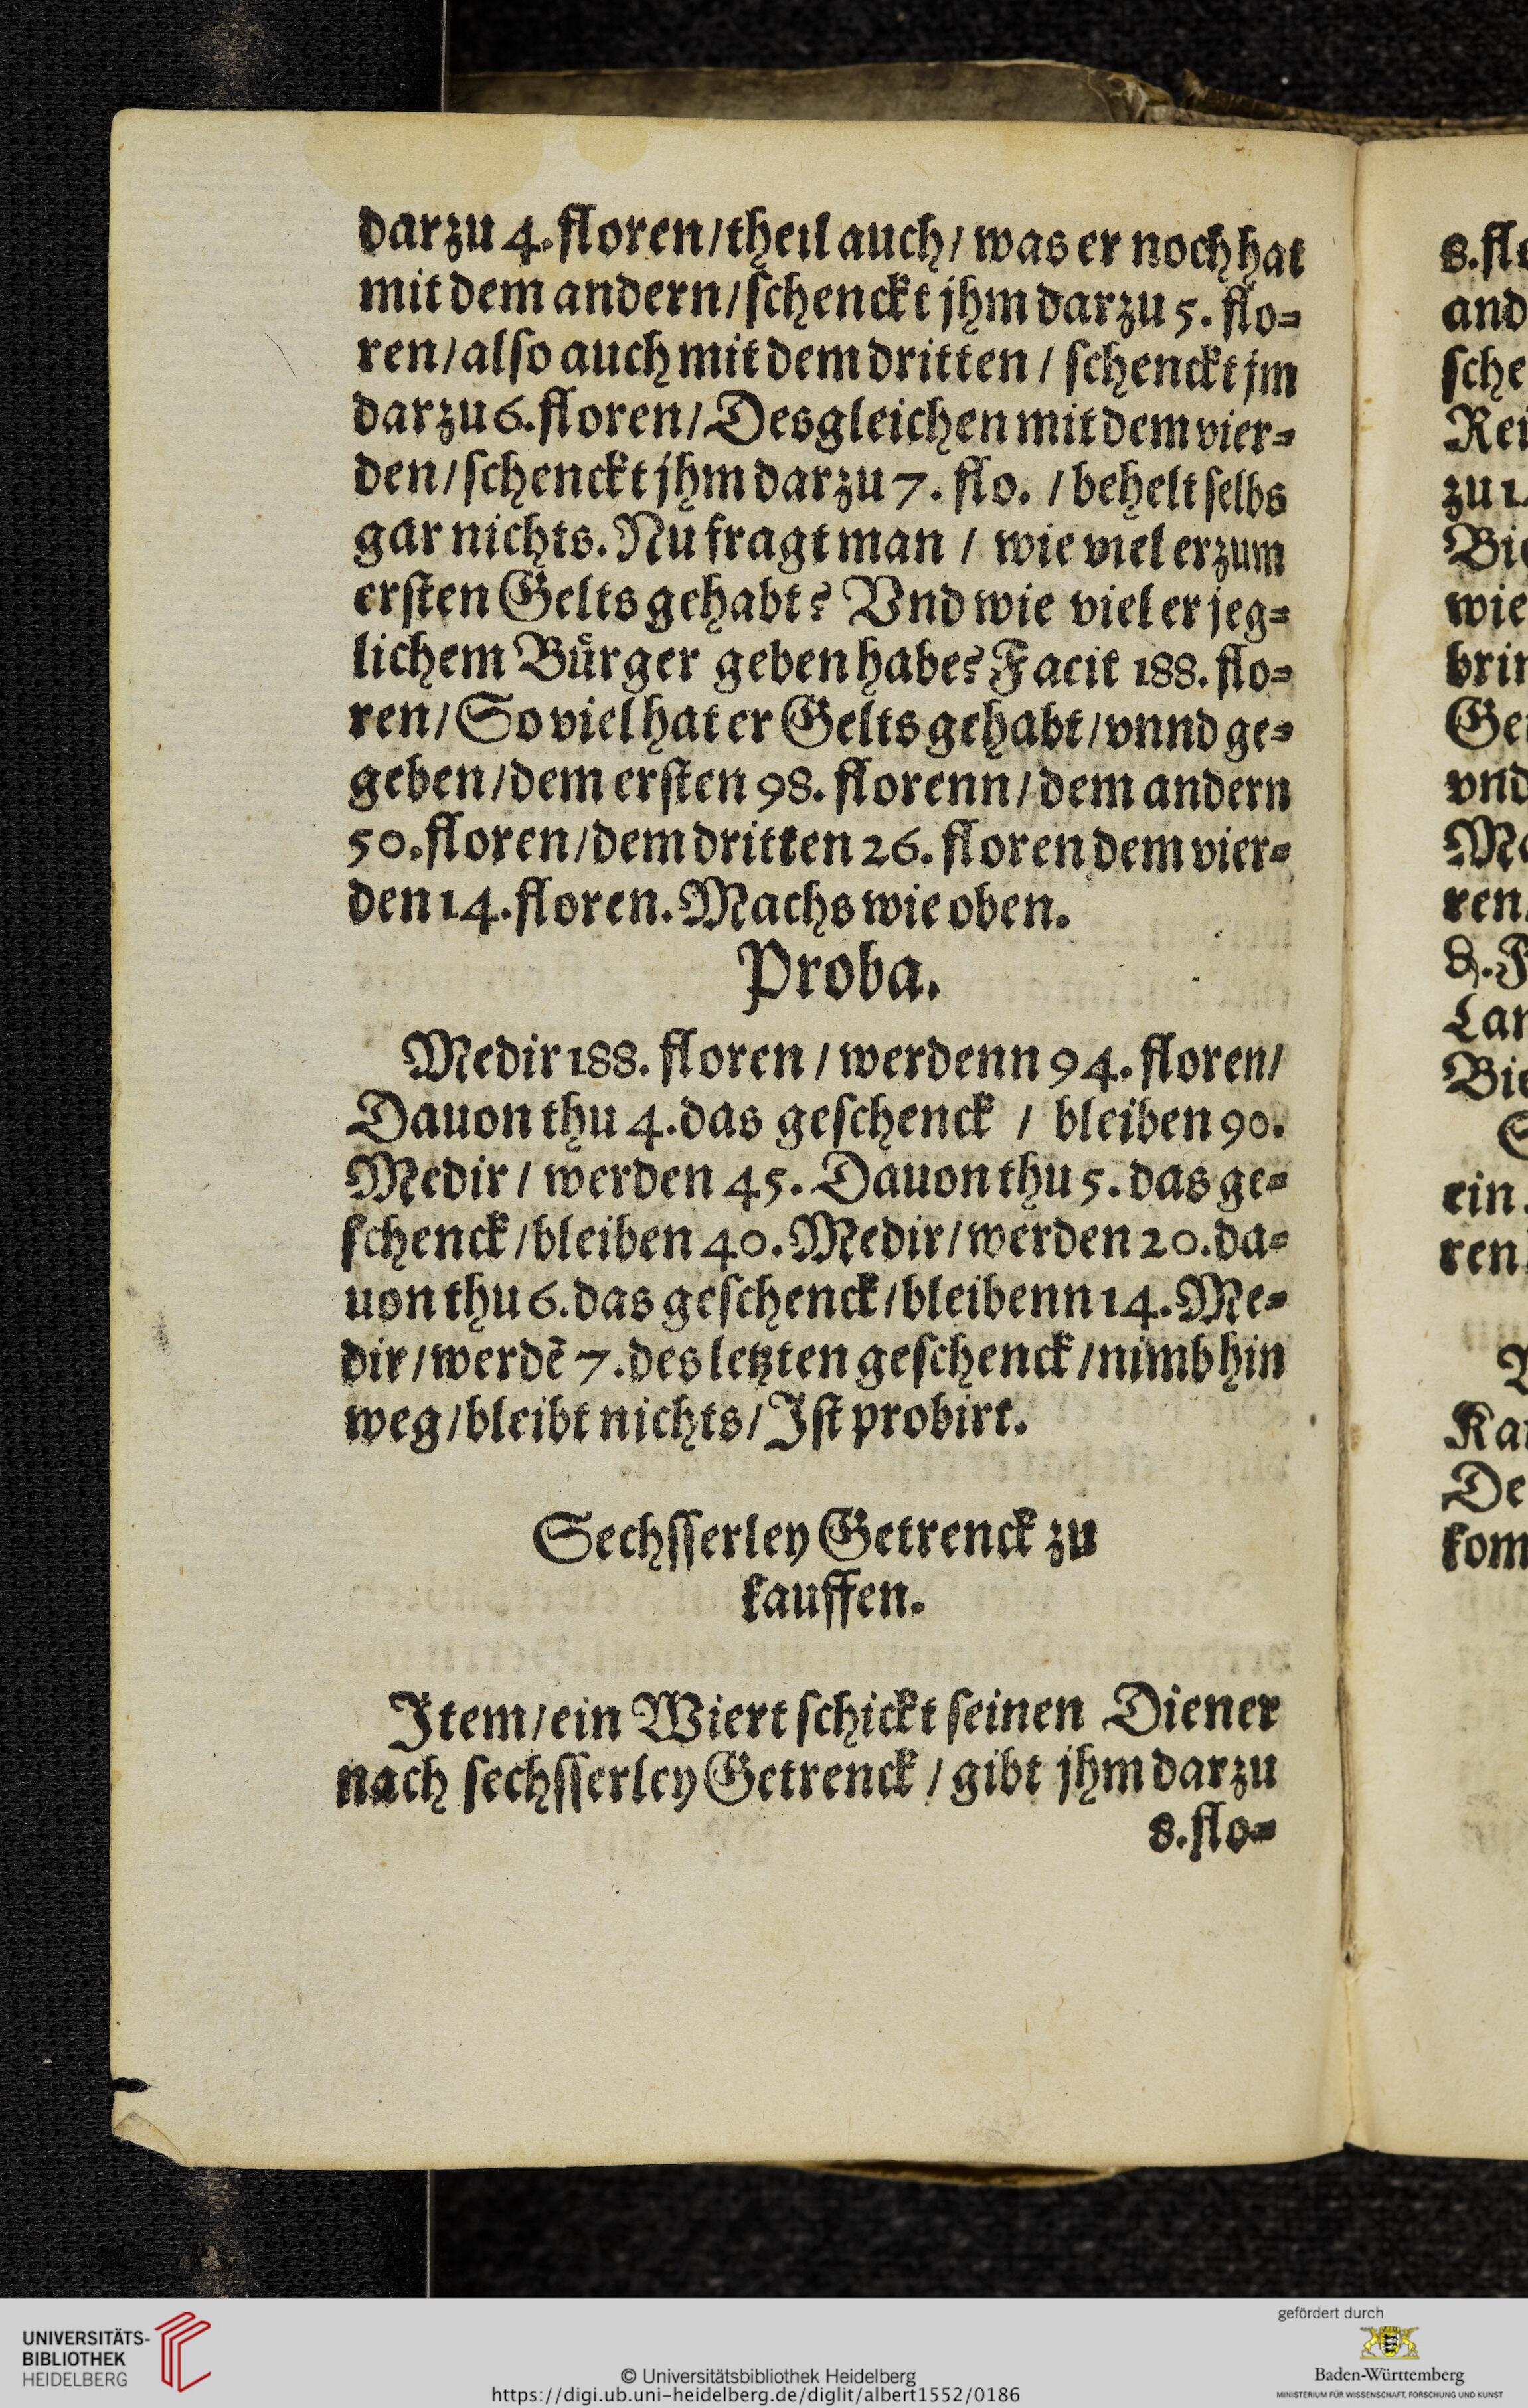 darzu 4. floren / theil auch / was er noch hat
mit dem andern / schenckt jhm darzu 5. flo=
ren / also auch mit dem dritten / schenckt jm
darzu 6. floren / Desgleichen mit dem vier=
den / schenckt jhm darzu 7. flo. / behelt selbs
gar nichts. Nu fragt man / wie viel er zum
ersten Gelts gehabt? Vnd wie viel er jeg=
lichem Bürger geben habe? Facit 188. flo=
ren / So viel hat er Gelts gehabt / vnnd ge=
geben / dem ersten 98. florenn / dem andern
50. floren / dem dritten 26. floren dem vier=
den 14. floren. Machs wie oben.
Proba.
Medir 188. floren / werdenn 94. floren /
Dauon thu 4. das geschenck / bleiben 90.
Medir / werden 45. Dauon thu 5. das ge=
schenck / bleiben 40. Medir / werden 20. da=
uon thu 6. das geschenck / bleibenn 14. Me=
dir / werdē 7. des letzten geschenck / nimb hin
weg / bleibt nichts / Ist probirt.
Sechsserley Getrenck zu
kauffen.
Item / ein Wiert schickt seinen Diener
nach sechsserley Getrenck / gibt jhm darzu
8. flo=
8. flo
and
sche
Rei
zu 1
Bie
wie
brin
Ge
vnd
Ma
ren
8. F
Lan
Bie
S
ein.
ren
Ka
De
kom
UNIVERSITÄTS-
BIBLIOTHEK
HEIDELBERG
© Universitätsbibliothek Heidelberg
https://digi.ub.uni-heidelberg.de/diglit/albert1552/0186
gefördert durch
Baden-Württemberg
MINISTERIUM FÜR WISSENSCHAFT, FORSCHUNG UND KUNST